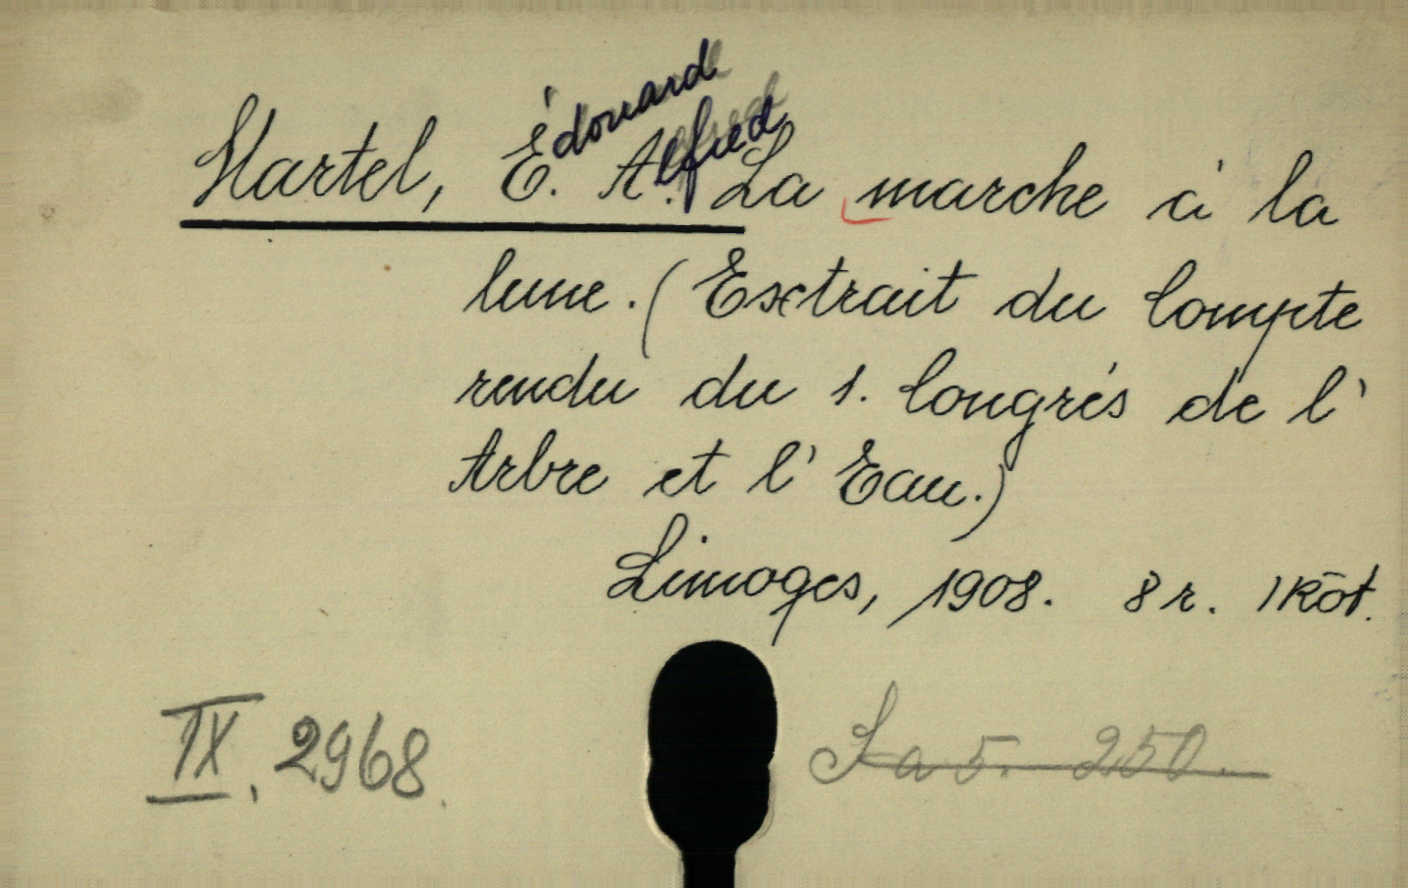 Édouard
Alfred
Martel, E. A. La marche à la
lune. (Extrait du Compte
rendu du 1. Congrés de l'
Arbre et l' Eau.)
Limoges, 1908. 8 r. 1 Köt.
IX. 2968.
a 5. 250.